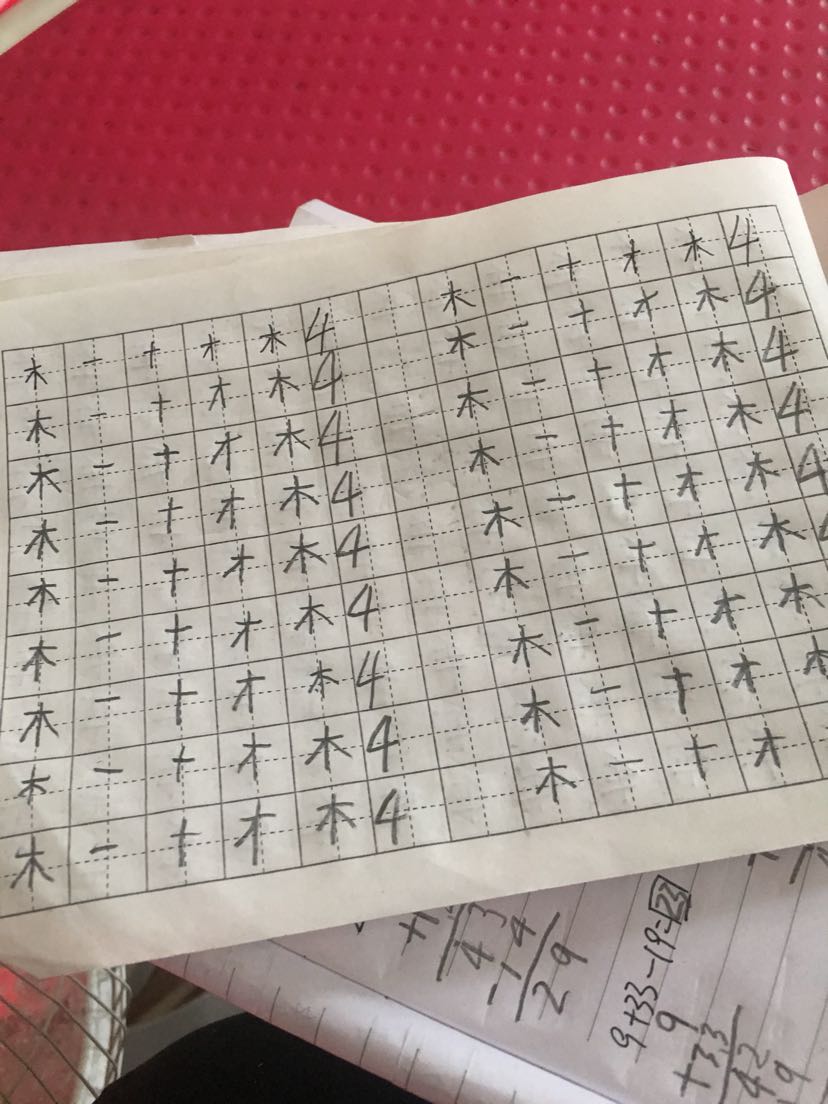 木 一 十 才 木 4 木 一 十 才 木 4
木 一 十 才 木 4 木 一 十 才 木 4
木 一 十 才 木 4 木 一 十 才 木 4
木 一 十 才 木 4 木 一 十 才 木 4
木 一 十 才 木 4 木 一 十 才 木 4
木 一 十 才 木 4 木 一 十 才 木
木 一 十 才 木 4 木 一 十 才 木
木 一 十 才 木 4 木 一 十 才
木 一 十 才 木 4 木 一 十 才
43
-14
29
9+33-19=23
9
+33
42